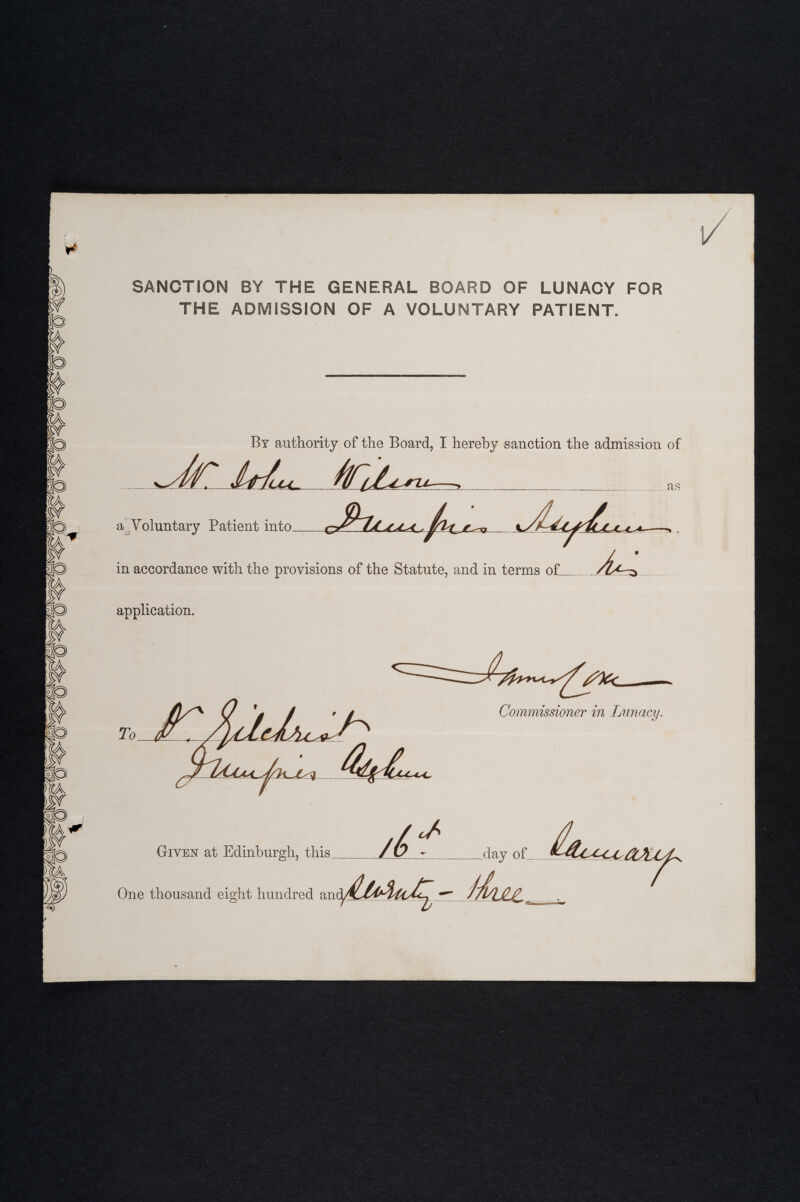 SANCTION BY THE GENERAL BOARD OF LUNACY FOR
THE ADMISSION OF A VOLUNTARY PATIENT.
BY authority of the Board, I hereby sanction the admission of
Mr. John Wilson as
a Voluntary Patient into Dumfries Asylum.
in accordance with the provisions of the Statute, and in terms of his
application.
James Coxe
Commissioner in Lunacy.
To Dr. Gilchrist
Dumfries Asylum
GIVEN at Edinburgh, this 16th day of January
One thousand eight hundred and seventy-three.